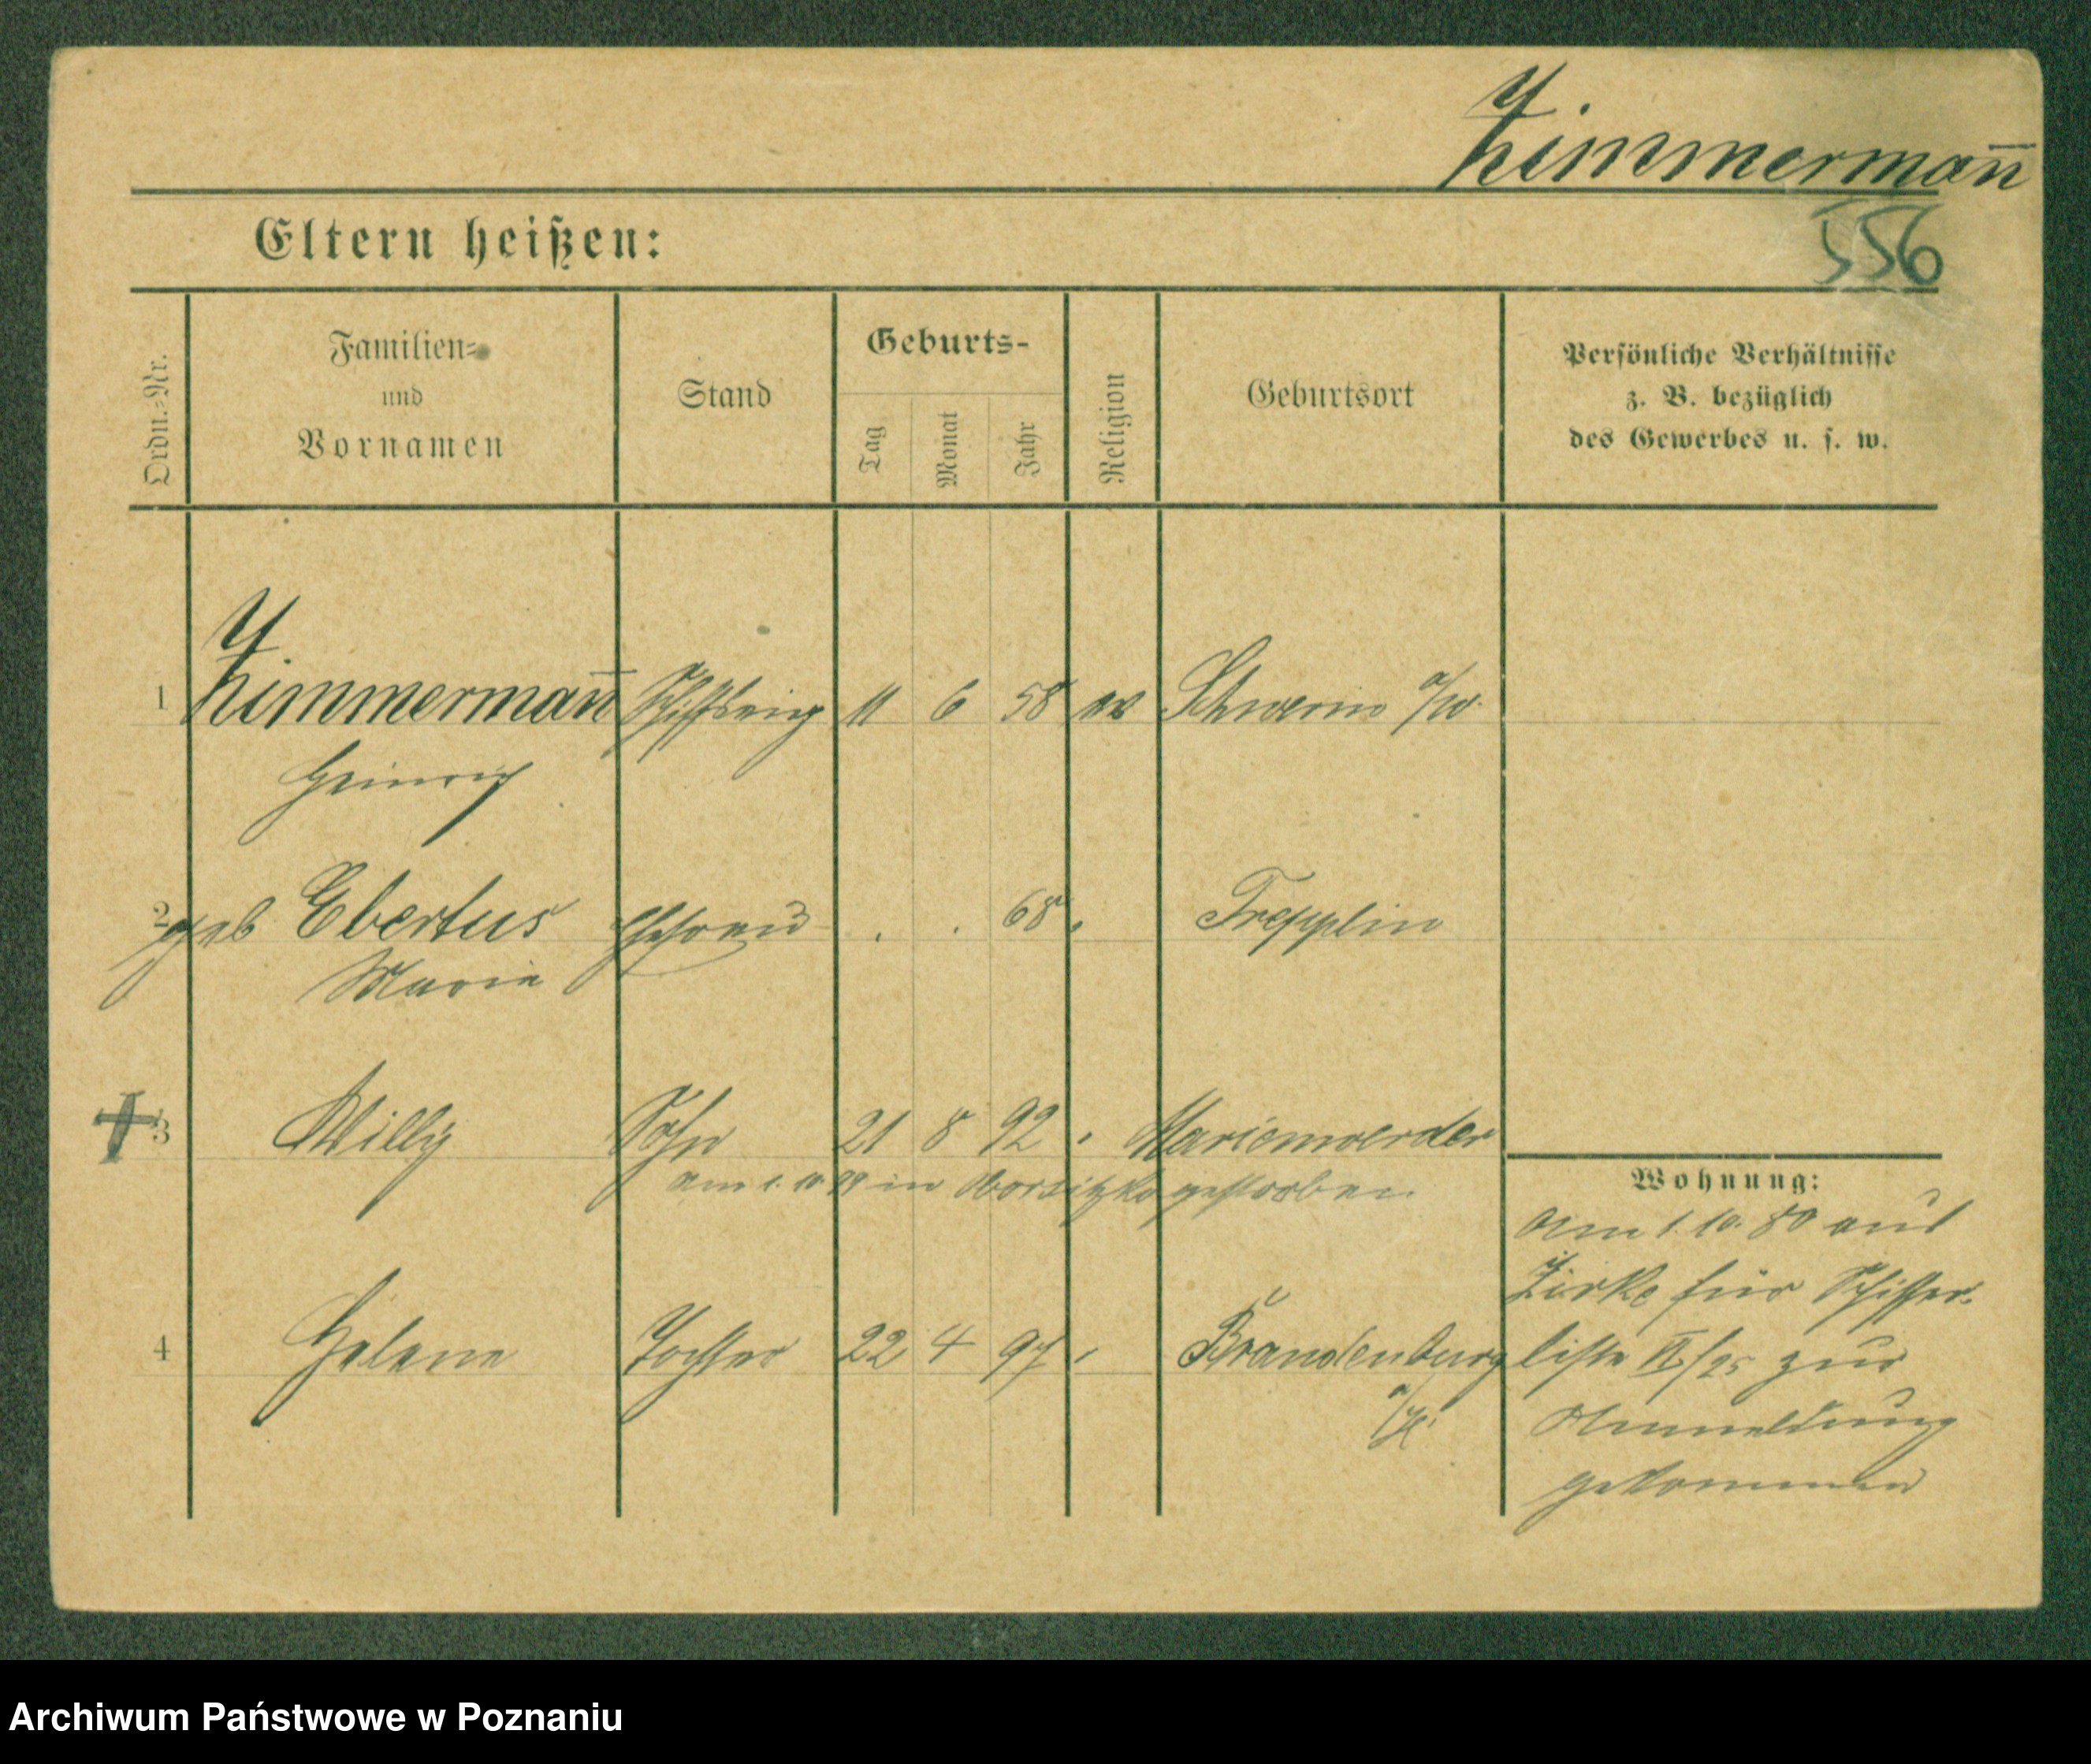 Zimmermañ
556
Eltern heißen:
Ordn.-Nr.
Familien-
und
Vornamen
Stand
Geburts-
Tag
Monat
Jahr
Religion
Geburtsort
Persönliche Verhältnisse
z. B. bezüglich
des Gewerbes u. s. w.
1 Zimmermañ 11 6 58 ev Schwerin a/W.
Heinrich
2 geb Ebertus Ehefrau . . 68 . Trepplin
Marie
3 Willy Sohn 21 8 92 " Marienwerder
am 1. 10. in gestorben
4 Helene Tochter 22 4 97 " Brandenburg
a/H.
Wohnung:
am 1. 10. aus
Zirke für Schiffer-
liste zur
Anmeldung
gekommen
Archiwum Państwowe w Poznaniu